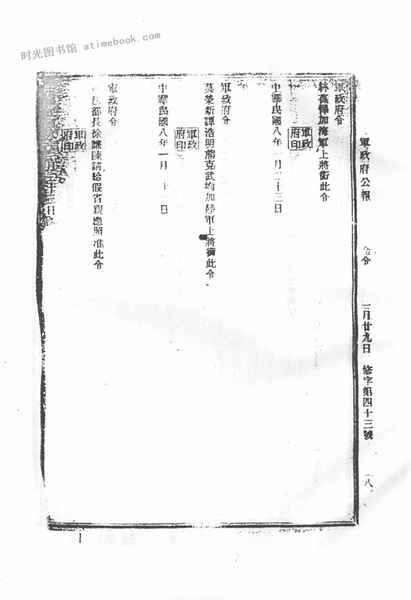 时光图书馆 atimebook.com
軍政府公報
令
三月廿九日 修字第四十三號
八
軍政府令
林葆懌加海軍上將銜此令
軍政府印
中華民國八年一月二十三日
軍政府令
莫榮新譚浩明熊克武均加陸軍上將銜此令
軍政府印
中華民國八年一月 十 日
軍政府令
部長徐謙陳請給假省親應照准此令
軍政府印